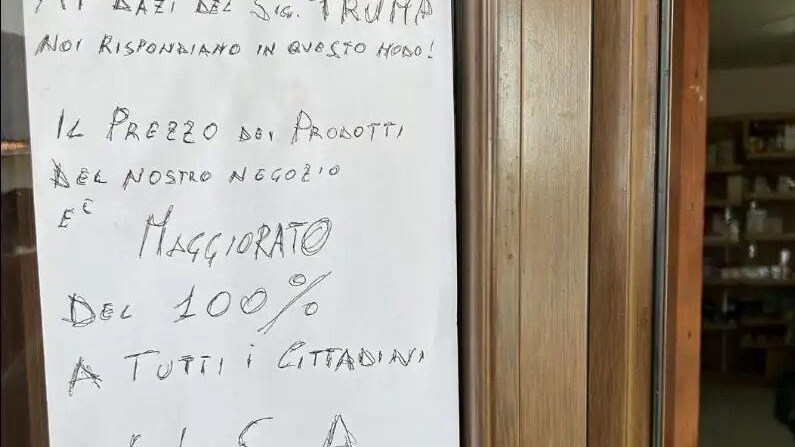 AI DAZI DEL SIG. TRUMP
NOI RISPONDIAMO IN QUESTO MODO!
IL PREZZO DEI PRODOTTI
DEL NOSTRO NEGOZIO
E' MAGGIORATO
DEL 100%
A TUTTI I CITTADINI
U.S.A